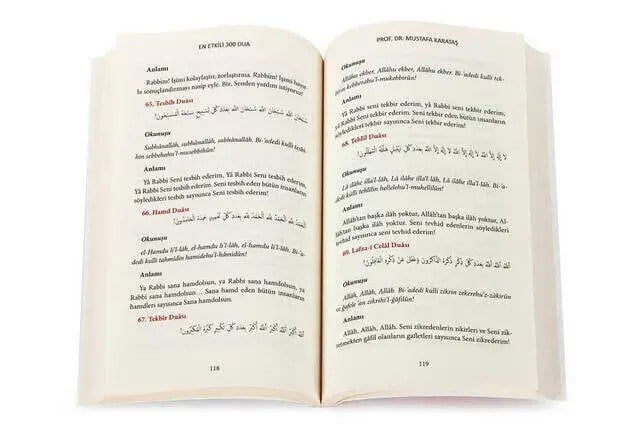 EN ETKİLİ 300 DUA
Anlamı
Rabbim! İşimi kolaylaştır, zorlaştırma. Rabbim! İşimi hayır-
la sonuçlandırmayı nasip eyle. Biz, Senden yardım istiyoruz!
65. Tesbih Duâsı
سُبْحَانَ اللهِ سُبْحَانَ اللهِ سُبْحَانَ اللهِ بِعَدَدِ كُلِّ تَسْبِيحٍ سَبَّحَهُ الْمُسَبِّحُونَ!
Okunuşu
Subhanallâh, subhanallâh, subhanallâh. Bi-'adedi kulli tesbî-
hin sebbehahu'l-musebbihûn!
Anlamı
Yâ Rabbi Seni tesbih ederim, yâ Rabbi Seni tesbih ederim,
yâ Rabbi Seni tesbih ederim. Seni tesbih eden bütün insanların
söyledikleri tesbih sayısınca Seni tesbih ederim!
66. Hamd Duâsı
الْحَمْدُ لِلهِ الْحَمْدُ لِلهِ الْحَمْدُ لِلهِ بِعَدَدِ كُلِّ تَحْمِيدٍ حَمِدَهُ الْحَامِدُونَ!
Okunuşu
el-Hamdu li'l-lâh, el-hamdu li'l-lâh, el-hamdu li'l-lâh. Bi-'a-
dedi kulli tahmîdin hamidehu'l-hâmidûn!
Anlamı
Ya Rabbi sana hamdolsun, ya Rabbi sana hamdolsun, ya
Rabbi sana hamdolsun... Sana hamd eden bütün insanların
hamdleri sayısınca Sana hamdolsun.
67. Tekbir Duâsı
اللهُ أَكْبَرُ اللهُ أَكْبَرُ اللهُ أَكْبَرُ بِعَدَدِ كُلِّ تَكْبِيرٍ كَبَّرَهُ الْمُكَبِّرُونَ!
118
PROF. DR. MUSTAFA KARATAŞ
Okunuşu
Allâhu ekber, Allâhu ekber, Allâhu ekber. Bi-'adedi kulli tek-
bîrin kebberahu'l-mukebbirûn!
Anlamı
Yâ Rabbi Seni tekbir ederim, yâ Rabbi Seni tekbir ederim,
yâ Rabbi Seni tekbir ederim. Seni tekbir eden bütün insanların
söyledikleri tekbir sayısınca Seni tekbir ederim!
68. Tehlîl Duâsı
لَا إِلَهَ إِلَّا اللهُ لَا إِلَهَ إِلَّا اللهُ لَا إِلَهَ إِلَّا اللهُ بِعَدَدِ كُلِّ تَهْلِيلٍ هَلَّلَهُ الْمُهَلِّلُونَ!
Okunuşu
Lâ ilâhe illa'l-lâh, Lâ ilâhe illa'l-lâh, Lâ ilâhe illa'l-lâh. Bi-'a-
dedi kulli tehlîlin hellelehu'l-muhellilûn!
Anlamı
Allâh'tan başka ilah yoktur, Allâh'tan başka ilah yoktur, Al-
lâh'tan başka ilah yoktur. Seni tevhid edenlerin söyledikleri
tevhid sayısınca Seni tevhid ederim!
69. Lafza-i Celâl Duâsı
اللهُ اللهُ اللهُ بِعَدَدِ كُلِّ ذِكْرٍ ذَكَرَهُ الذَّاكِرُونَ وَغَفَلَ عَنْ ذِكْرِهِ الْغَافِلُونَ!
Okunuşu
Allâh, Allâh, Allâh. Bi-'adedi kulli zikrin zekerahu'z-zâkirûn
ve ğafele 'an zikrihi'l-ğâfilûn!
Anlamı
Allâh, Allâh, Allâh. Seni zikredenlerin zikirleri ve Seni zik-
retmekten gâfil olanların gafletleri sayısınca Seni zikrederim!
119